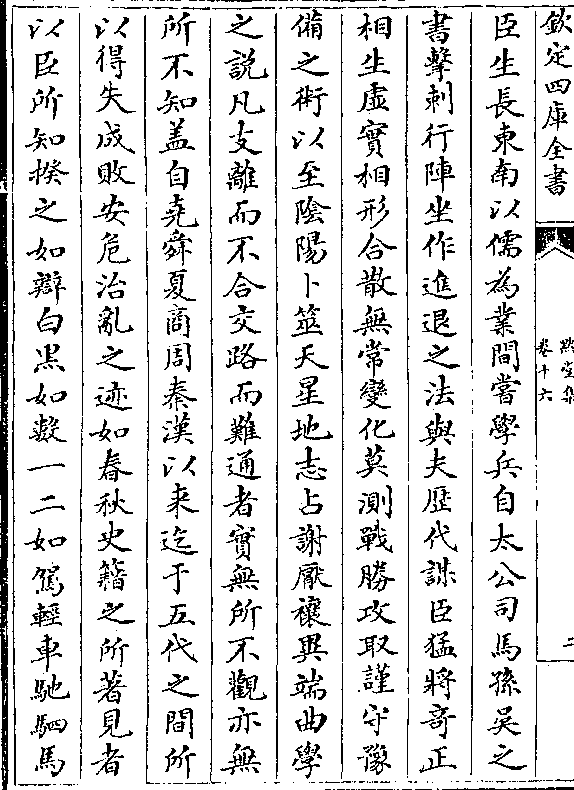 欽定四庫全書
卷十六
二
臣生長東南以儒為業間嘗學兵自太公司馬孫吳之
書擊刺行陣坐作進退之法與夫歷代謀臣猛將奇正
相生虛實相形合散無常變化莫測戰勝攻取謹守豫
備之術以至陰陽卜筮天星地志占謝厭禳異端曲學
之說凡支離而不合交路而難通者實無所不觀亦無
所不知盖自堯舜夏商周秦漢以来迄于五代之間所
以得失成敗安危治亂之迹如春秋史籍之所著見者
以臣所知揆之如辯白黒如數一二如駕輕車馳駟馬